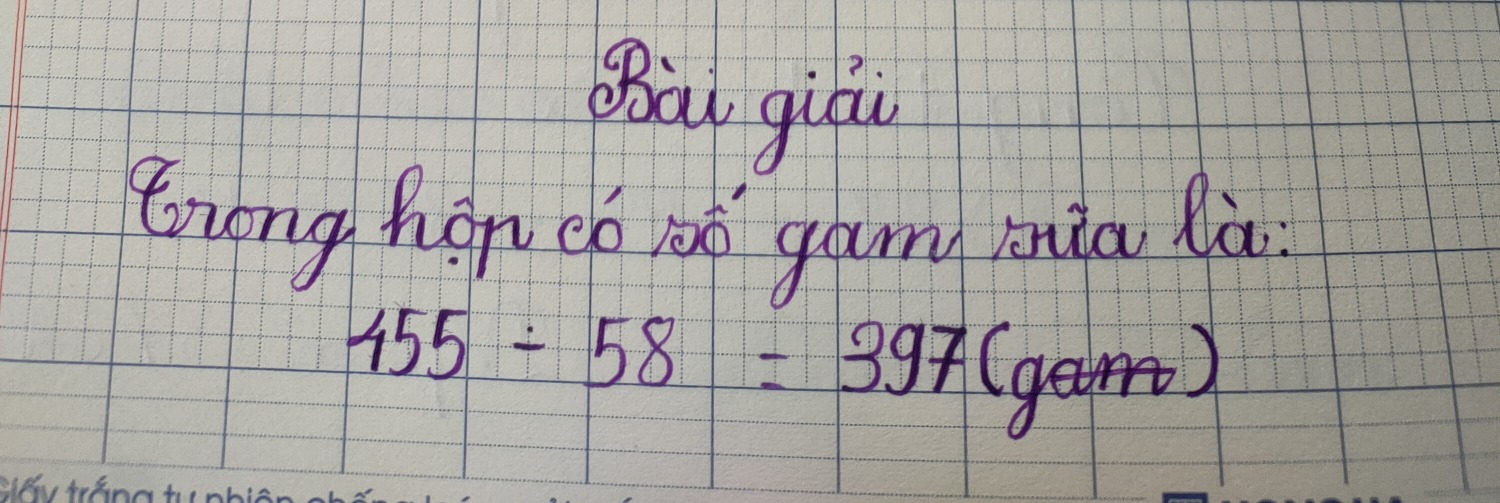 Bài giải
Trong hộp có số gam sữa là:
455 - 58 = 397 (gam)
Giấy trắng tự nhiên